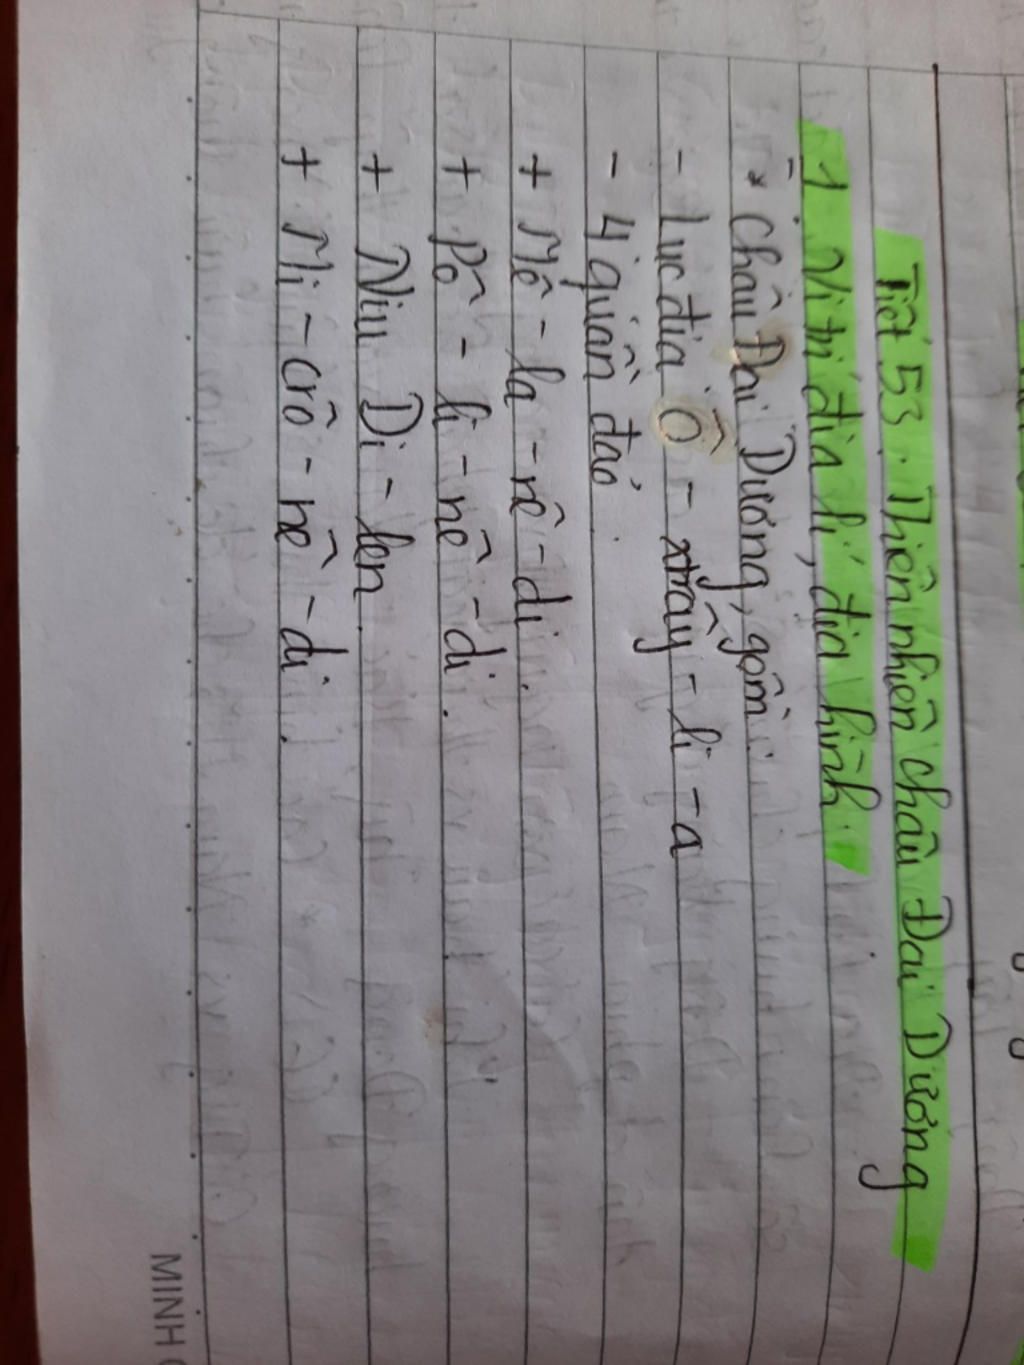 Tiết 53. Thiên nhiên châu Đại Dương
1. Vị trí địa lí, địa hình.
* Châu Đại Dương, gồm:
- Lục địa Ô - xtrây - li - a
- 4 quần đảo.
+ Mê - la - nê - di.
+ Pô - li - nê - di.
+ Niu Di - len.
+ Mi - crô - nê - di.
MINH